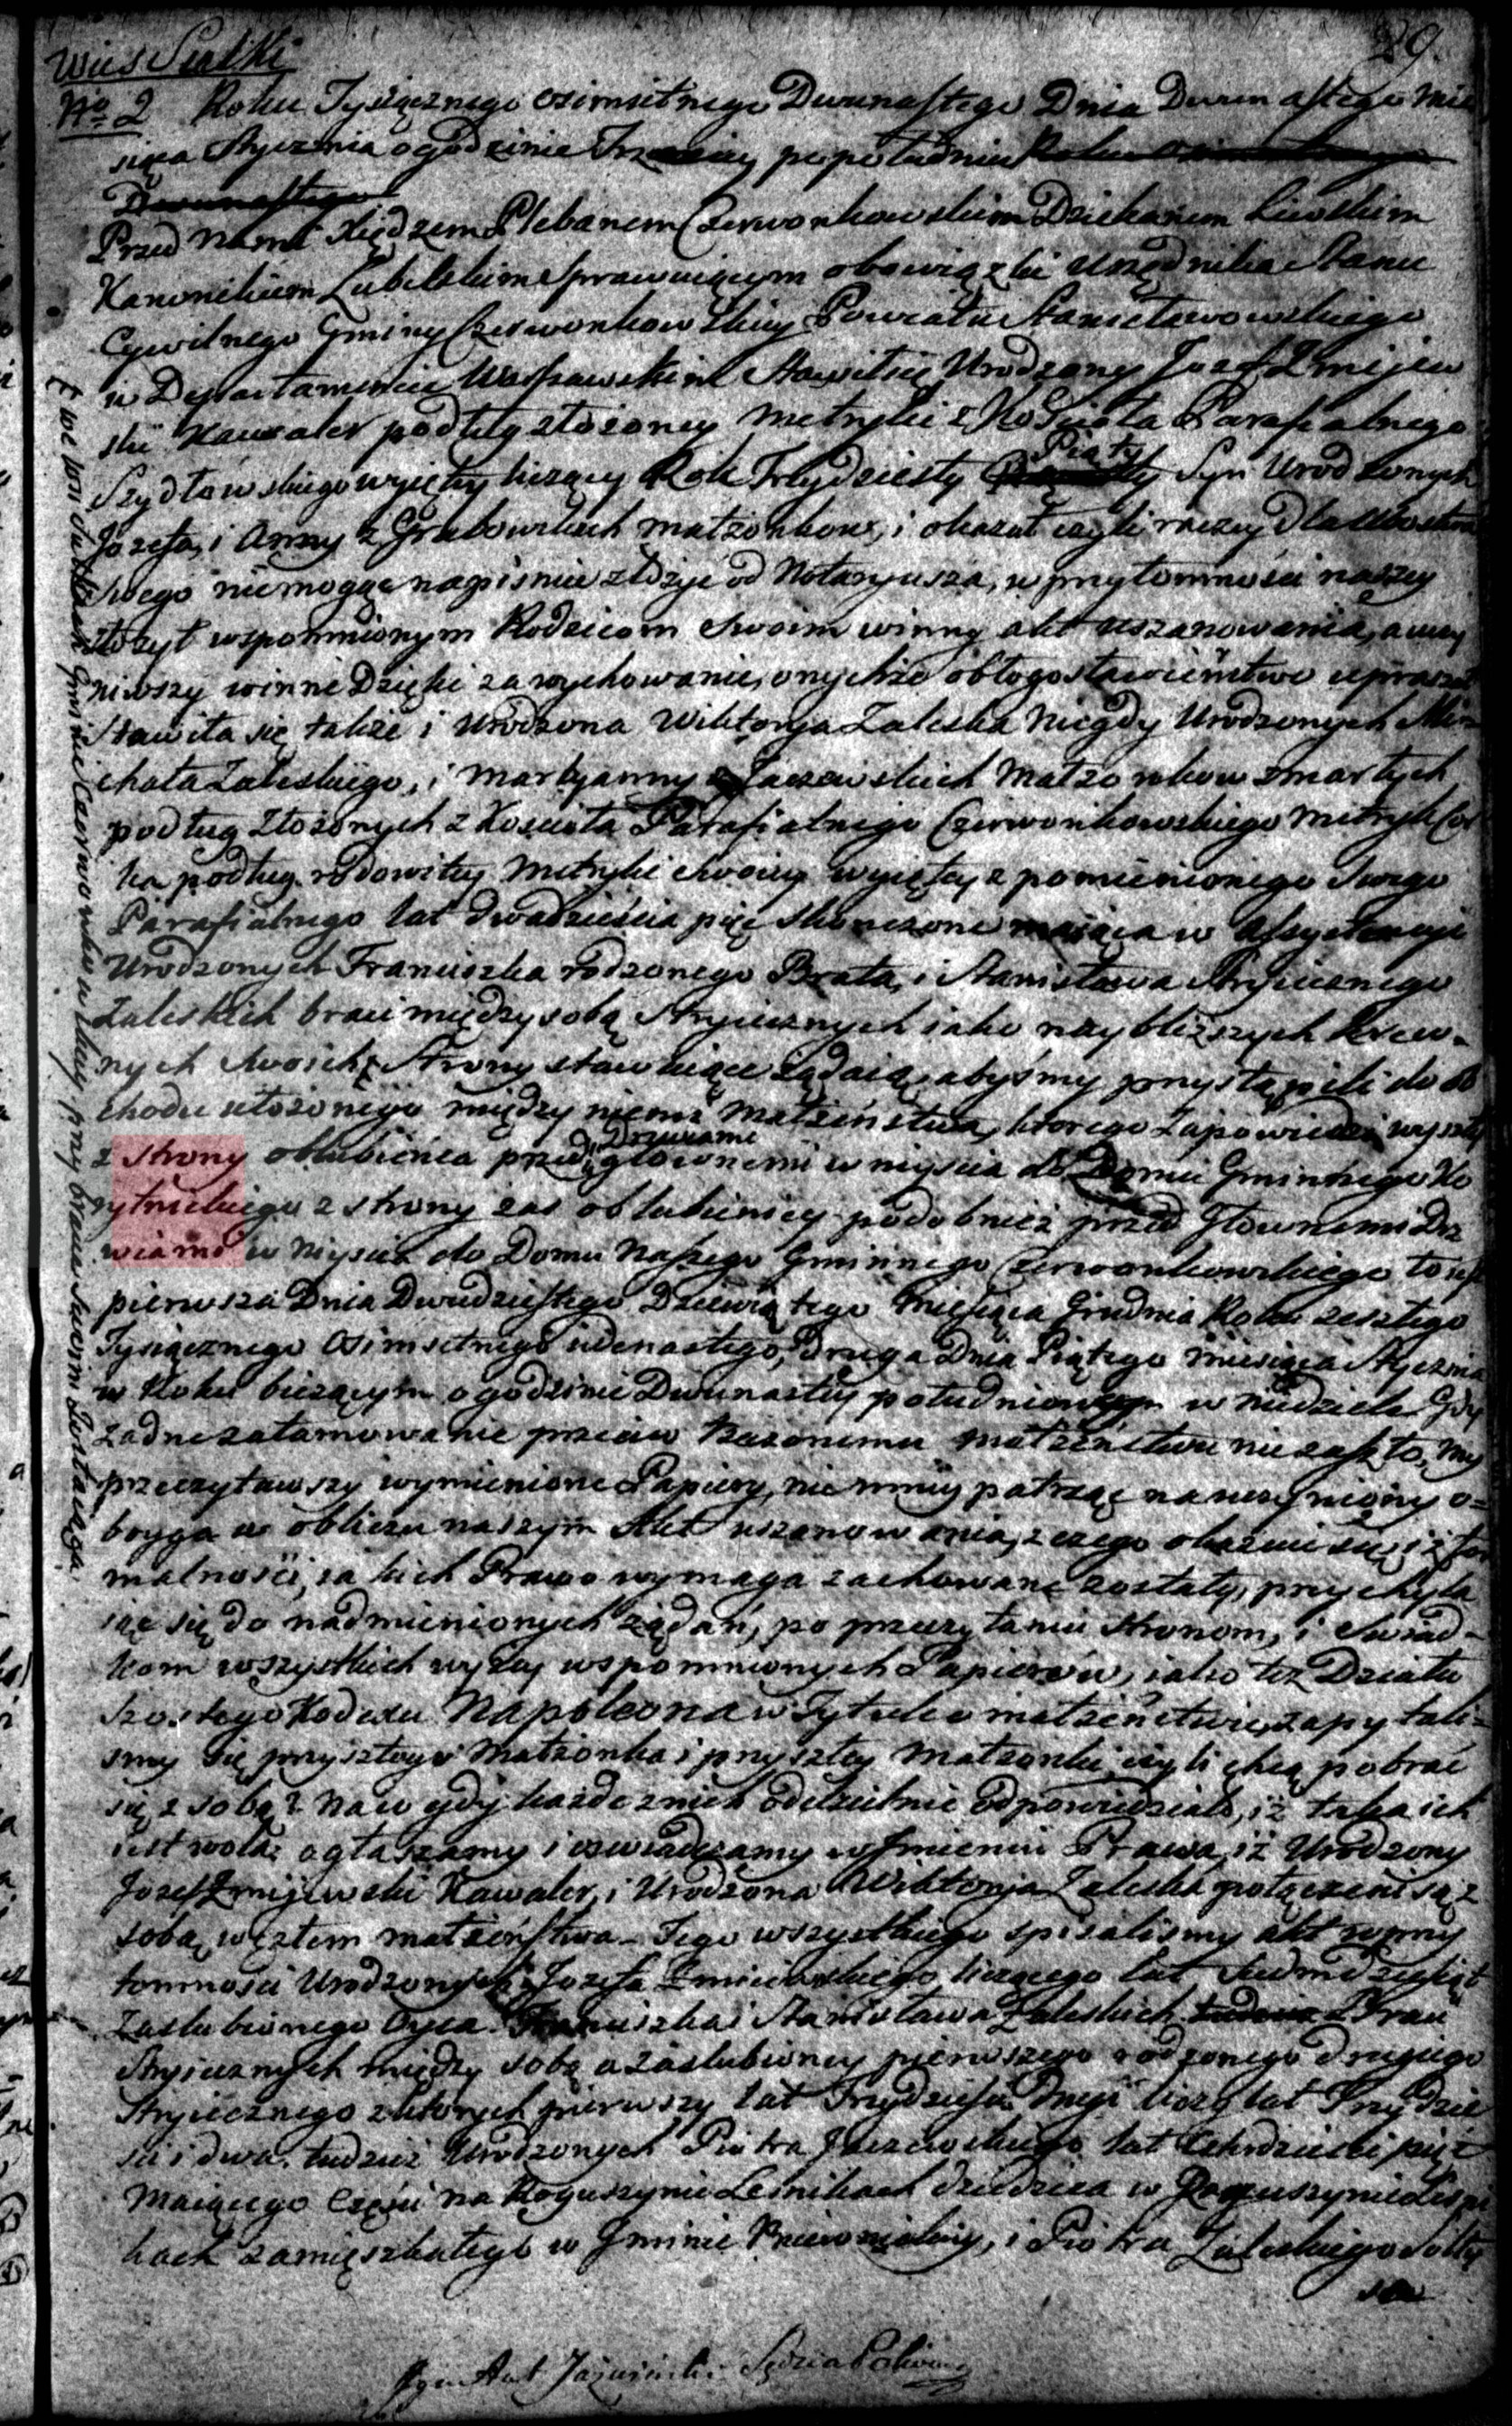 Wieś Sulki
29.
No 2 Roku Tysiącznego osimsetnego Dwunastego Dnia Dwunastego Mie
siąca Stycznia o godzinie Trzeciey popołudniu
Dwunastego
Przed nami Xiędzem Plebanem Czerwonkowskim Dziekanem Liwskim
Kanonikiem Lubelskim Sprawuiącym obowiązki Urzędnika Stanu
Cywilnego Gminy Czerwonkowskiey Powiatu Stanisławowskiego
w Departamencie Warszawskim Stawił się Urodzony Jozef Zmijew
ski Kawaler podług złożoney Metryki z Kościoła Parafialnego
Szydłowskiego wyiętey liczący Rok Trzydziesty Piąty Syn Urodzonych
Jozefa, i Anny z Grabowskich małżonków, i okazał czyli raczey dla
swego niemogąc napiśmie złożyć od Notaryusza, w przytomności naszey
złożył wspomnionym Rodzicom swoim winny akt uszanowania, a uczy
niwszy winne Dzięki za wychowanie, onychże o błogosławieństwo upraszał
Stawiła się także i Urodzona Wiktorya Zaleska niegdy Urodzonych Mi=
chała Zaleskiego, i Maryanny z Jaczewskich Małżonkow zmarłych
podług złożonych z Kościoła Parafialnego Czerwonkowskiego Metryk Cor
ka podług rodowitey Metryki swoiey wyiętey z pomienionego Swego
Parafialnego lat dwadzieścia pięć skonczone maiąca w Assystencyi
Urodzonych Franciszka rodzonego Brata, i Stanisława Stryiecznego
Zaleskich braci między sobą Stryiecznych iako naybliższych krew-
nych swoich, Strony stawaiące żądaią, abyśmy przystąpili do ob
chodu ułożonego między niemi Małżeństwa, ktorego zapowiedzi wyszły
z strony oblubieńca przed głownemi Drzwiami w niyscia do Domu Gminnego Ko
rytnickiego z strony zas oblubienicy podobnież przed głownemi Drz
wiami w niyscia do Domu Naszego Gminnego Czerwonkowskiego to iest
pierwsza Dnia Dwudziestego Dziewiątego Miesiąca Grudnia Roku zeszłego
Tysiącznego Osimsetnego iedenastego, Druga Dnia Piątego miesiąca Stycznia
w Roku bieżącym o godzinie Dwunastey południowey w niedziele Gdy
żadne zatamowanie przeciw rzeczonemu małżeństwu nie zaszło, my
przeczytawszy wymienione Papiery, nie mniey patrząc na uczyniony o=
boyga w obliczu naszym Akt uszanowania, z czego okazuie się iż for
malności, iakich Prawo wymaga zachowane zostały, przychyla
iąc się do nadmienionych żądań, po przeczytaniu stronom, i Swiad-
kom wszystkich wyżey wspomnionych Papierow, iako też Działu
szostego Kodexu Napoleona w Tytule o małżeństwie, zapytali=
smy się przyszłego Małżonka i przyszłey Małżonki czyli chcą pobrać
się z sobą? na co gdy każde z nich oddzielnie odpowiedziało, iż taka ich
iest wola: ogłaszamy i oswiadczamy w Imieniu Prawa, iż Urodzony
Jozef Zmijewski Kawaler, i Urodzona Wiktorya Zaleska połączeni są z
sobą węzłem małżeństwa - Tego wszystkiego spisalismy akt w przy
tomności Urodzonych Jozefa Zmiiewskiego liczącego lat Siedmdziesiąt
Zaslubionego Oyca. Franciszka i Stanisława Zaleskich Braci
Stryiecznych między sobą a zaslubioney pierwszego rodzonego drugiego
Stryiecznego z ktorych pierwszy lat Trzydzieści Drugi liczy lat Trzydzie
sci i dwa. tudzież Urodzonych Piotra Jaczewskiego lat Czterdzieści pięć
Maiącego Części na Roguszynie Lesnikach dziedzica w Roguszynie Lesni
kach zamięszkałego w Gminie, i Piotra Zaleskiego Sołty
sa
we wsi Sulkach Gminie Czerwonka w teyże przy bracie swoim zostaiąca.
Sędzia Pokoiu